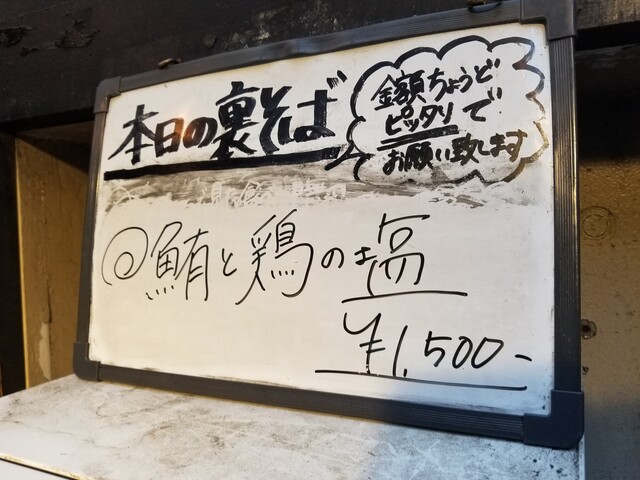 本日の裏そば
金額ちょうど
ピッタリで
お願い致します
◎鮪と鶏の塩
¥1,500-